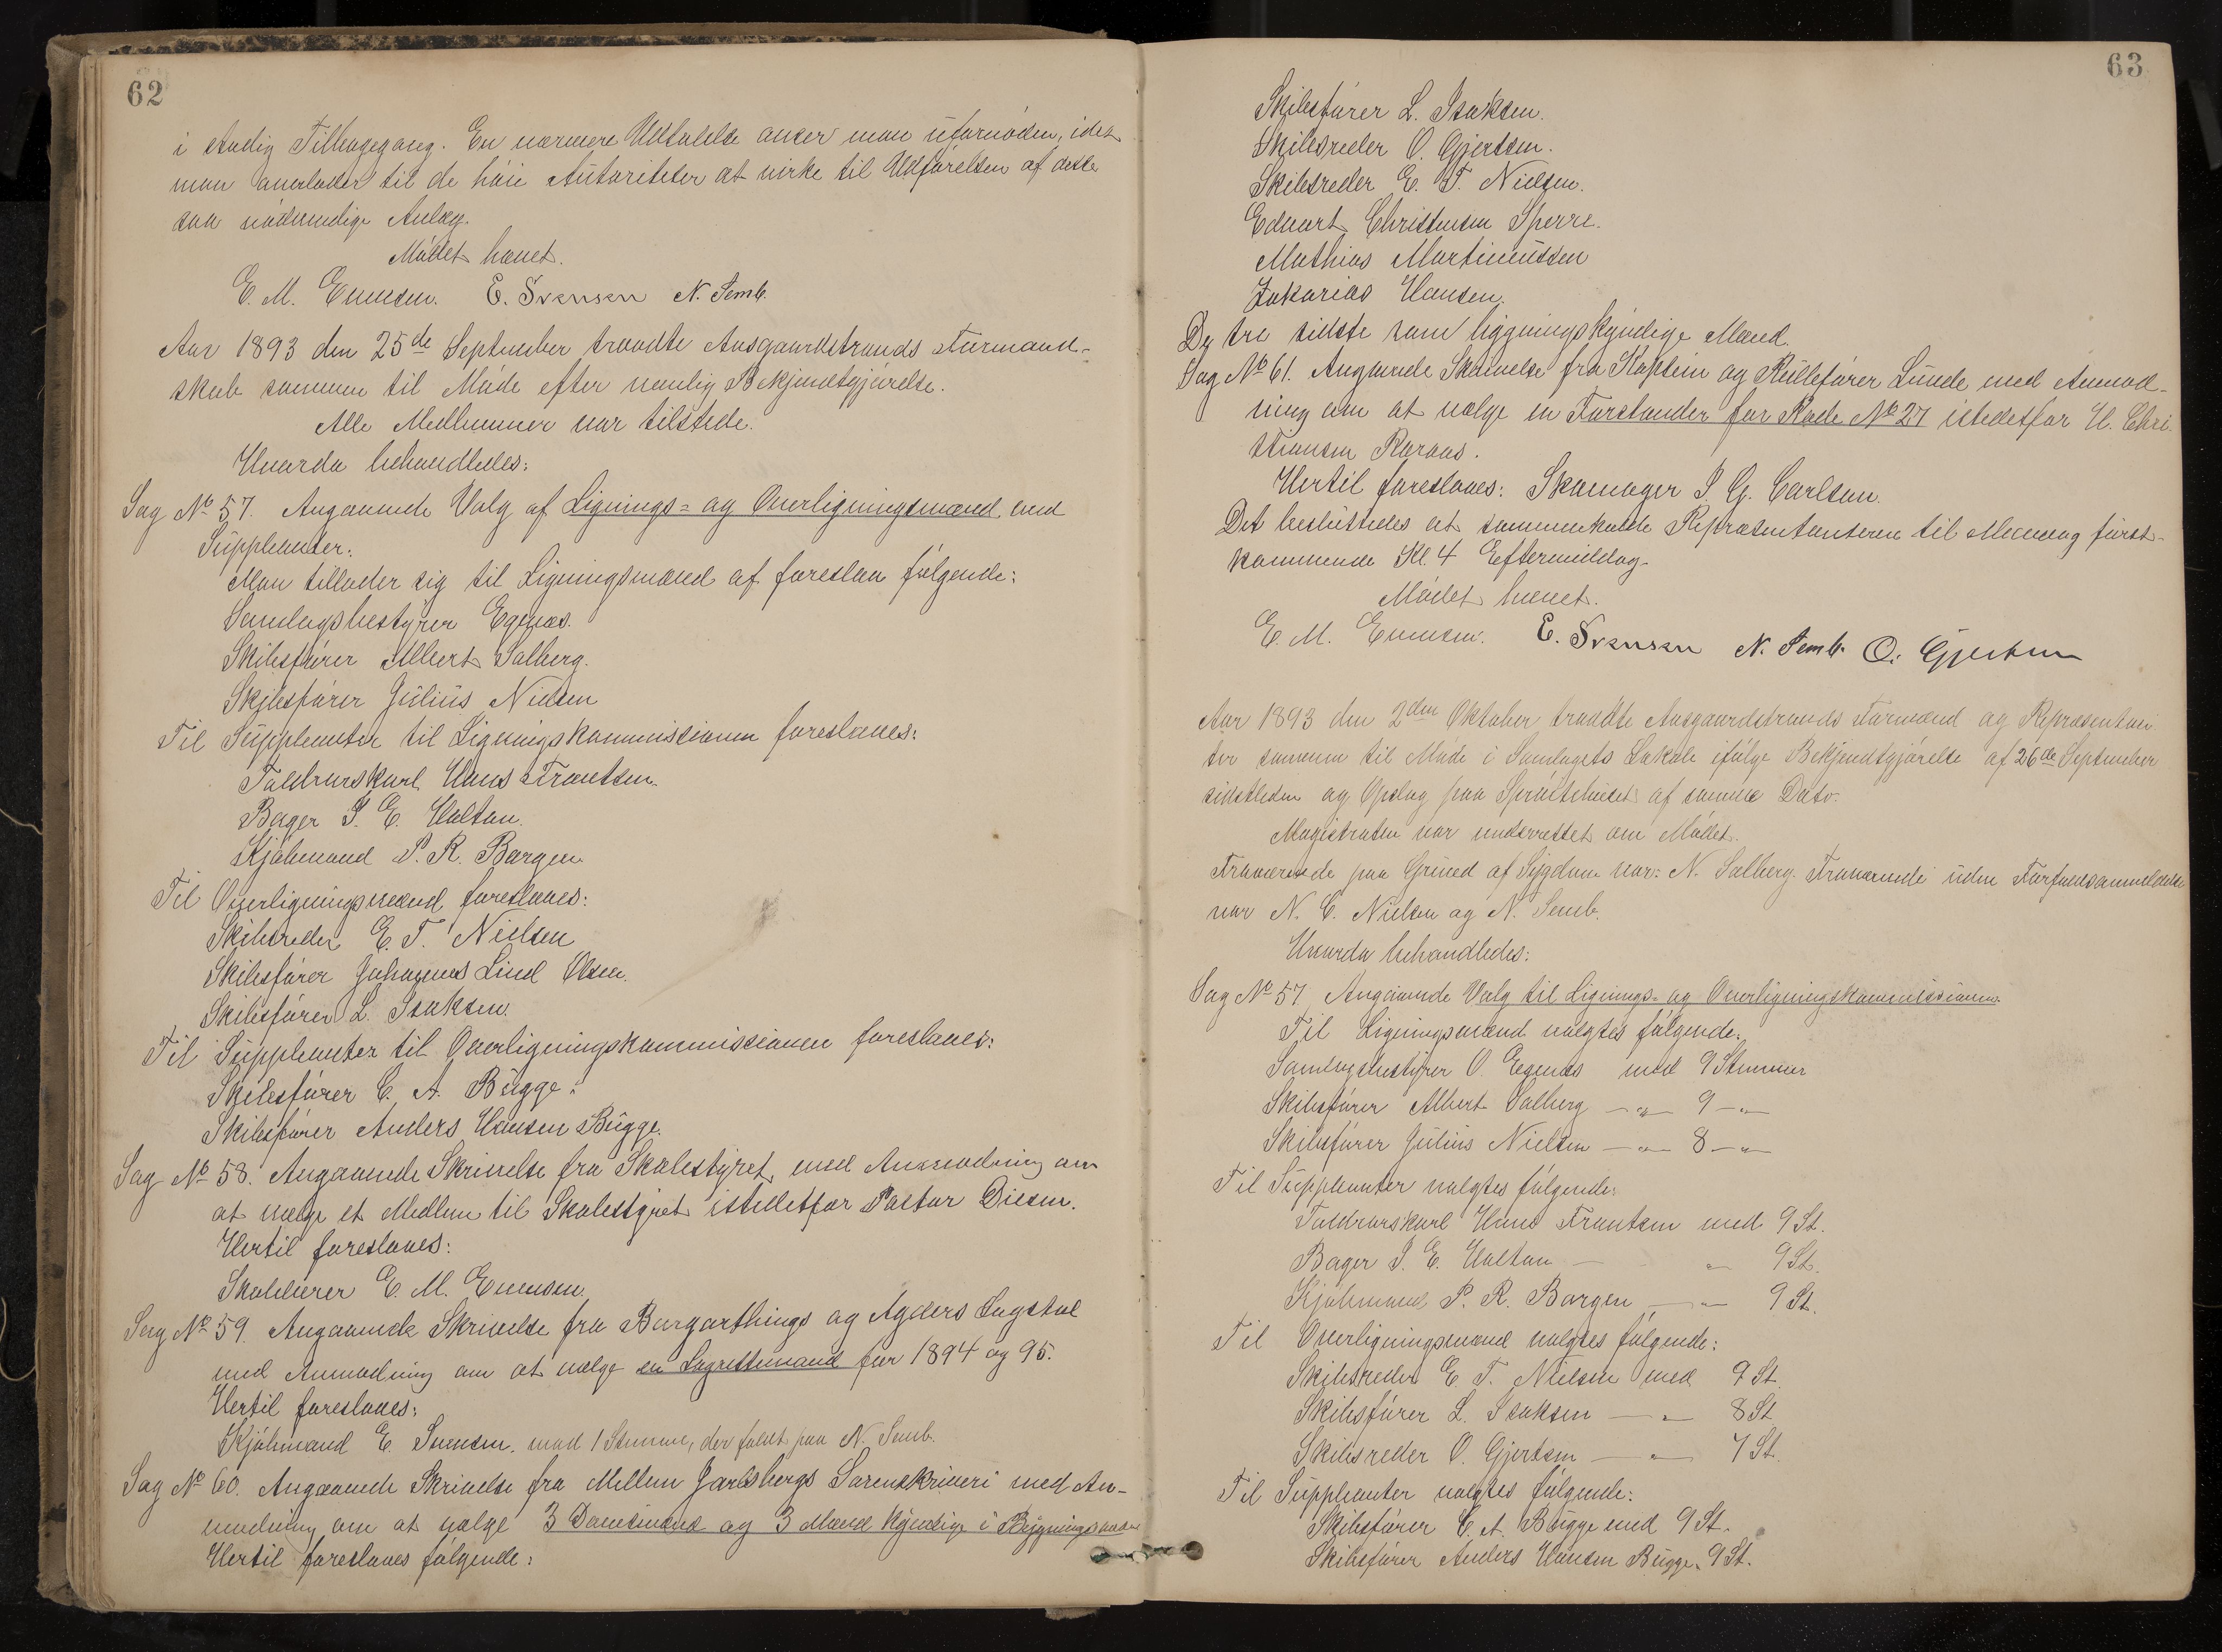 62
i stadig Tilbagegang. En nærmere Udtalelse anser man ufornøden, idet
man overlader til de høie Autoriteter at virke til Udførelsen af dette
saa nødvendige Anlæg.
Mødet hævet.
E. M. Evensen. E. Svensen N. Semb.
Aar 1893 den 25de September traadte Aasgaardstrands Formand-
skab sammen til Møde efter nemlig Bekjendtgjørelse.
Alle Medlemmer var tilstede.
Hvorda behandledes:
Sag No 57. Angaaende Valg af Lignings- og Overligningsmænd med
Suppleanter.
Man tillader sig til Ligningsmænd at foreslaa følgende:
Samlagsbestyrer Egenæs.
Skibsfører Albert Solberg.
Skibsfører Julius Nielsen
Til Suppleanter til Ligningskommissionen foreslaaes:
Toldrorskarl Hans Frantsen.
Bager I. E. Holtan.
Kjøbmand P. R. Borgen
Til Overligningsmænd foreslaaes:
Skibsreder E. T. Nielsen
Skibsfører Johannes Lind Olsen.
Skibsfører L. Isaksen.
Til Suppleanter til Overligningskommissionen foreslaaes:
Skibsfører C. A. Bugge.
Skibsfører Anders Hansen Bugge.
Sag No 58. Angaaende Skrivelse fra Skolestyret med Anmodning om
at vælge et Medlem til Skolestyret istedetfor Pastor Diesen.
Hertil foreslaaes:
Skolelærer E. M. Evensen.
Sag No 59. Angaaende Skrivelse fra Borgarthings og Agders Lagstol
med Anmodning om at vælge en Lagrettemand for 1894 og 95.
Hertil foreslaaes:
Kjøbmand E. Svensen. mod 1 Stemme, der faldt paa N. Semb.
Sag No 60. Angaaende Skrivelse fra Mellem Jarlsbergs Sorenskriveri med An-
modning om at vælge 3 Domsmænd og 3 Mænd kyndige i
Hertil foreslaaes følgende:
63
Skibsfører L. Isaksen.
Skibsreder O. Gjertsen.
Skibsreder E. T. Nielsen.
Edvart Christensen Sperre.
Mathias Martinussen
Zakarias Hansen.
De tre sidste som bygningskyndige Mænd.
Sag No 61. Angaaende Skrivelse fra Kaptein og Rullefører Lunde med Anmod-
ning om at vælge en Forstander for Rode No 27 istedetfor H. Chri-
stiansen Raraas.
Hertil foreslaaes: Skomager I. G. Carlson.
Det besluttedes at sammenkalde Repræsentanterne til Mandag først-
kommende Kl. 4 Eftermiddag.
Mødet hævet.
E. M. Evensen. E. Svensen N. Semb. O. Gjertsen
Aar 1893 den 2den Oktober traadte Aasgaardstrands Formænd og Repræsentan
ter sammen til Møde i Samlagets Lokale ifølge Bekjendtgjørelse af 26de September
sidstleden og Opslag paa Sprøitehuset af samme Dato.
Magistraten var underrettet om Mødet.
Fraværende paa Grund af Sygdom var: N. Solberg. Fraværende uden Forfaldsanmeldelse
var N. C. Nielsen og N. Semb.
Hvorda behandledes:
Sag No 57. Angaaende Valg til Lignings- og Overligningskommissionen.
Til Ligningsmænd valgtes følgende:
Samlagsbestyrer O. Egenæs med 9 Stemmer
Skibsfører Albert Solberg — " — 9 — "
Skibsfører Julius Nielsen — " — 8 — "
Til Suppleanter valgtes følgende:
Toldrorskarl Hans Frantsen med 9 St.
Bager I. E. Holtan — " 9 St.
Kjøbmand P. R. Borgen — " — 9 St.
Til Overligningsmænd valgtes følgende:
Skibsreder E. T. Nielsen med 9 St.
Skibsfører L. Isaksen — " — 8 St
Skibsreder O. Gjertsen — " — 7 St.
Til Suppleanter valgtes følgende:
Skibsfører C. A. Bugge med 9 St.
Skibsfører Anders Hansen Bugge. 9 St.